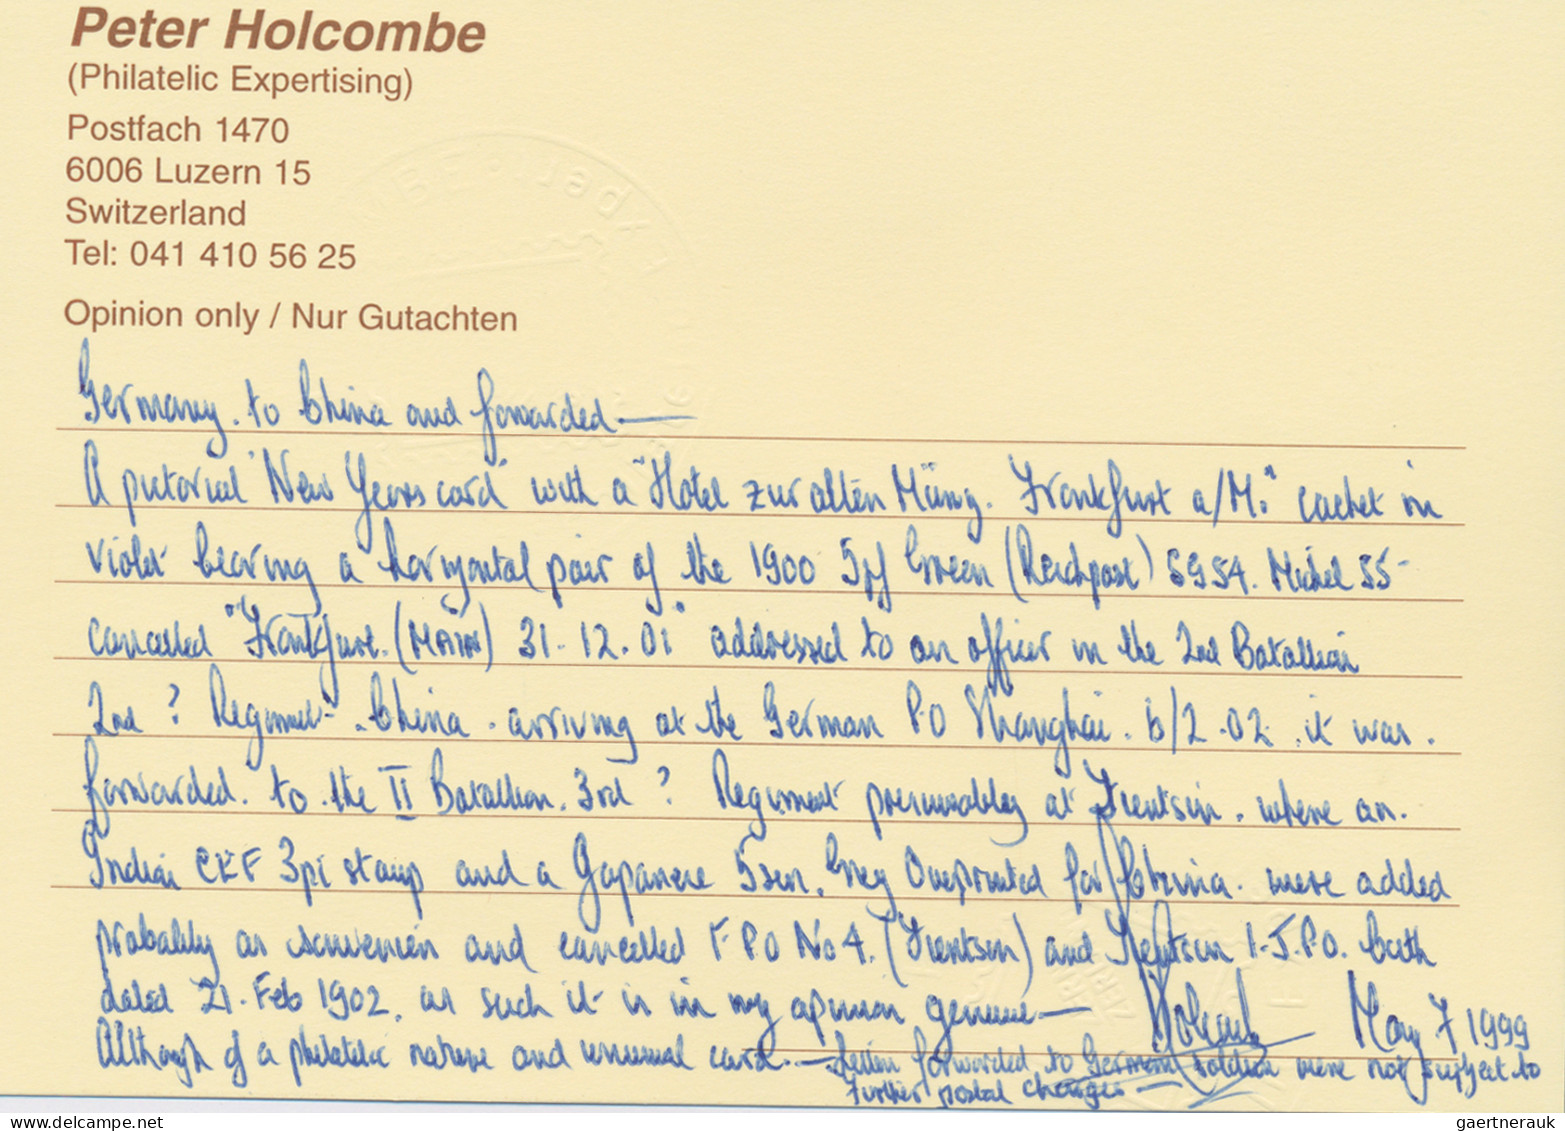 Peter Holcombe
(Philatelic Expertising)
Postfach 1470
6006 Luzern 15
Switzerland
Tel: 041 410 56 25
Opinion only / Nur Gutachten
Germany. to China and forwarded —
A pictorial "New Years card" with a "Hotel zur alten Münz. Frankfurt a/M." cachet in
violet bearing a horizontal pair of the 1900 5pf Green (Reichpost) SG 54. Michel 55-
cancelled "Frankfurt. (MAIN) 31.12.01" addressed to an officer in the 2nd Batallion
2nd ? Regiment. China. arriving at the German P.O Shanghai. 6/2.02. it was.
forwarded. to. the II Batallion. 3rd ? Regiment presumably at Tientsin. where an.
Indian CEF 3pi stamp and a Japanese 5sen. Grey Overprinted for China. were added
probably as souvenir and cancelled F.P.O No 4. (Tientsin) and Tientsin I.J.P.O. both
dated 21. Feb 1902. as such it is in my opinion genuine — May 7 1999
Although of a philatelic nature and unusual card. — forwarded to German were not subject to
further postal charges —
gaertnerauk
www.delcampe.net